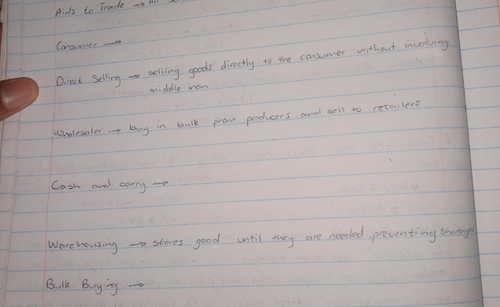 Aids to Trade → All
Consumer →
Direct Selling → selling goods directly to the consumer without involving
middle man
Wholesaler → buy in bulk from producers and sell to retailers
Cash and carry →
Warehousing → stores good until they are needed, preventing shortages
Bulk Buying →